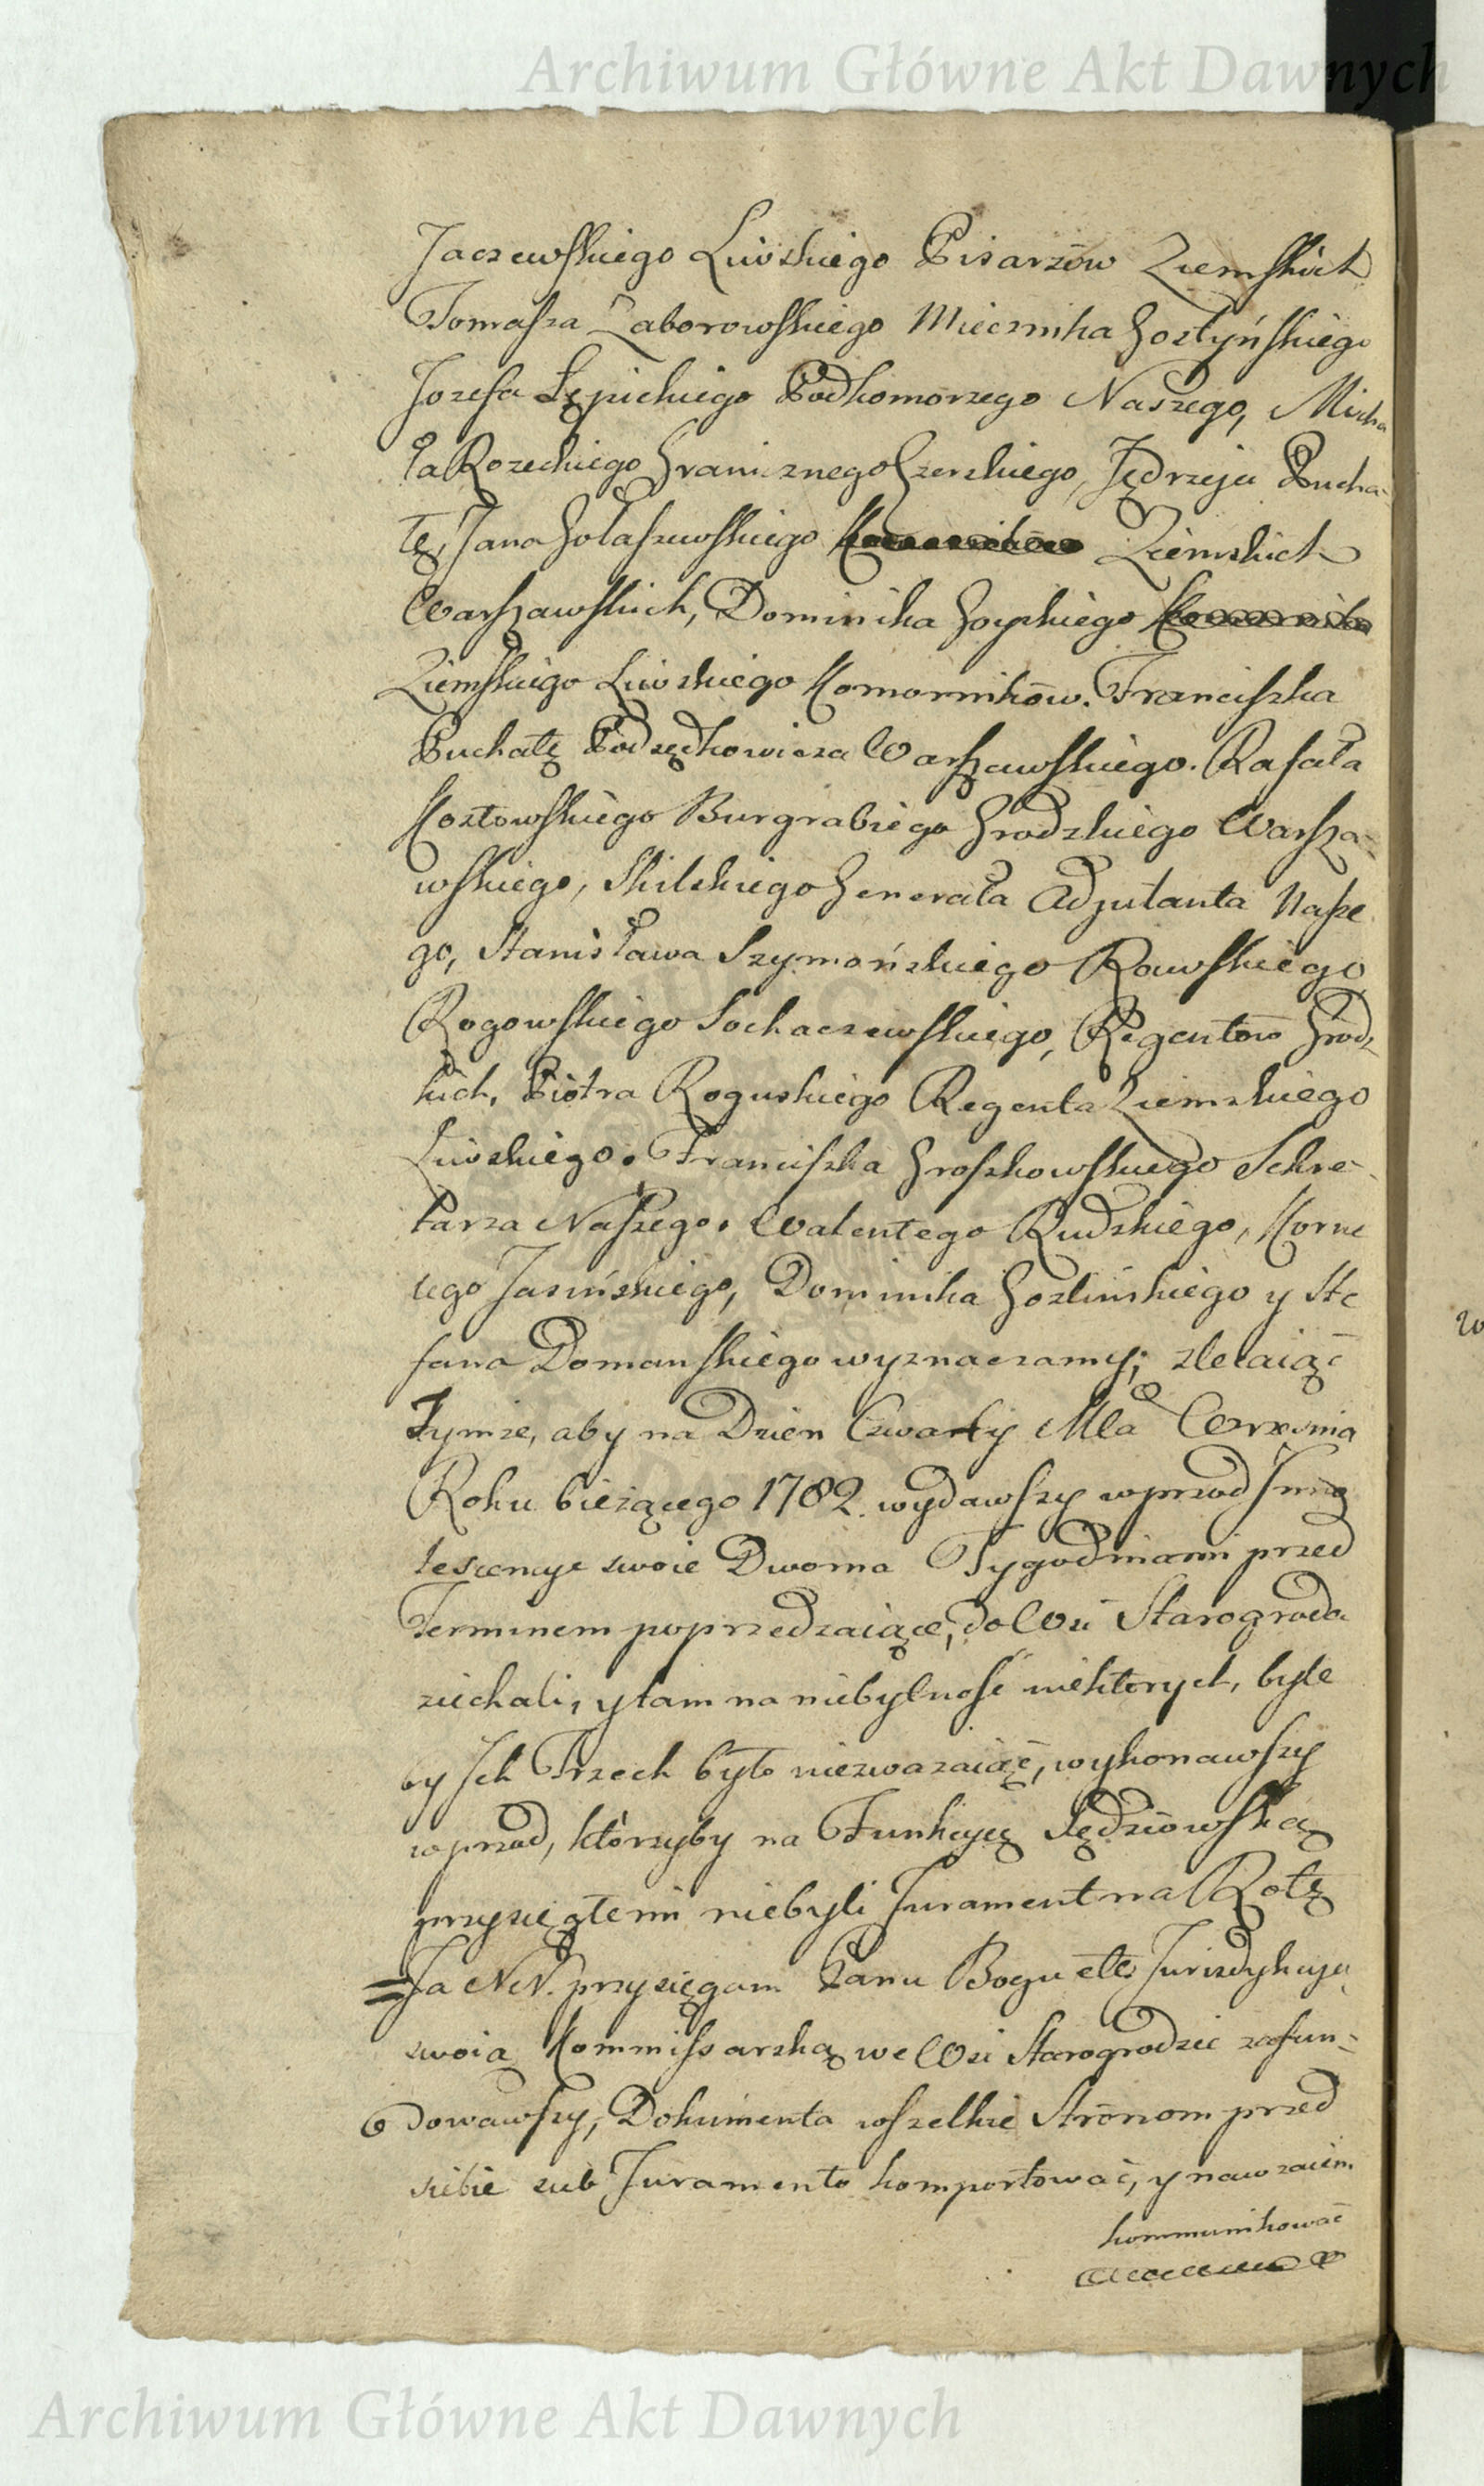 Archiwum Główne Akt Dawnych
Jaczewskiego Liwskiego Pisarzów Ziemskich
Tomasza Zaborowskiego Miecznika Gostyńskiego
Jozefa Łępickiego Podkomorzego Naszego, Micha
ła Rozeckiego Granicznego Czerskiego, Jędrzeja Pucha-
łę, Jana Gołaszewskiego Ziemskich
Warszawskich, Dominika Goyskiego
Ziemskiego Liwskiego Komorników. Franciszka
Puchałę Podsędkowicza Warszawskiego. Rafała
Kozłowskiego Burgrabiego Grodzkiego Warsza-
wskiego, Skilskiego Generała Adjutanta Nasze
go, Stanisława Szymońskiego Rawskiego
Rogowskiego Sochaczewskiego, Regentów Grodz-
kich, Piotra Roguskiego Regenta Ziemskiego
Liwskiego. Franciszka Groszkowskiego Sekre-
tarza Naszego. Walentego Rudzkiego, Korne
lego Jasińskiego, Dominika Gozlinskiego y Ste
fana Domanskiego wyznaczamy; zlecaiąc
Tymze, aby na Dzien Czwarty Mca Wrzesnia
Roku bieżącego 1782. wydawszy wprzod Inno
tescencye swoie Dwoma Tygodniami przed
Terminem poprzedzaiące, do Wsi Starogroda
ziechali, y tam na niebytność niektorych, byle
by Jch Trzech było niezwazaiąc, wykonawszy
wprzod, którzyby na Funkcyą Sędziowską
przysięgłemi niebyli Jurament na Rotę
=Ja NN. przysięgam Panu Bogu etc. Jurisdykcyą
swoią Kommissarską we Wsi Starogrodzie zafun-
dowawszy, Dokumenta wszelkie Stronom przed
siebie sub Juramento komportować, y nawzaiem
kommunikować
Archiwum Główne Akt Dawnych